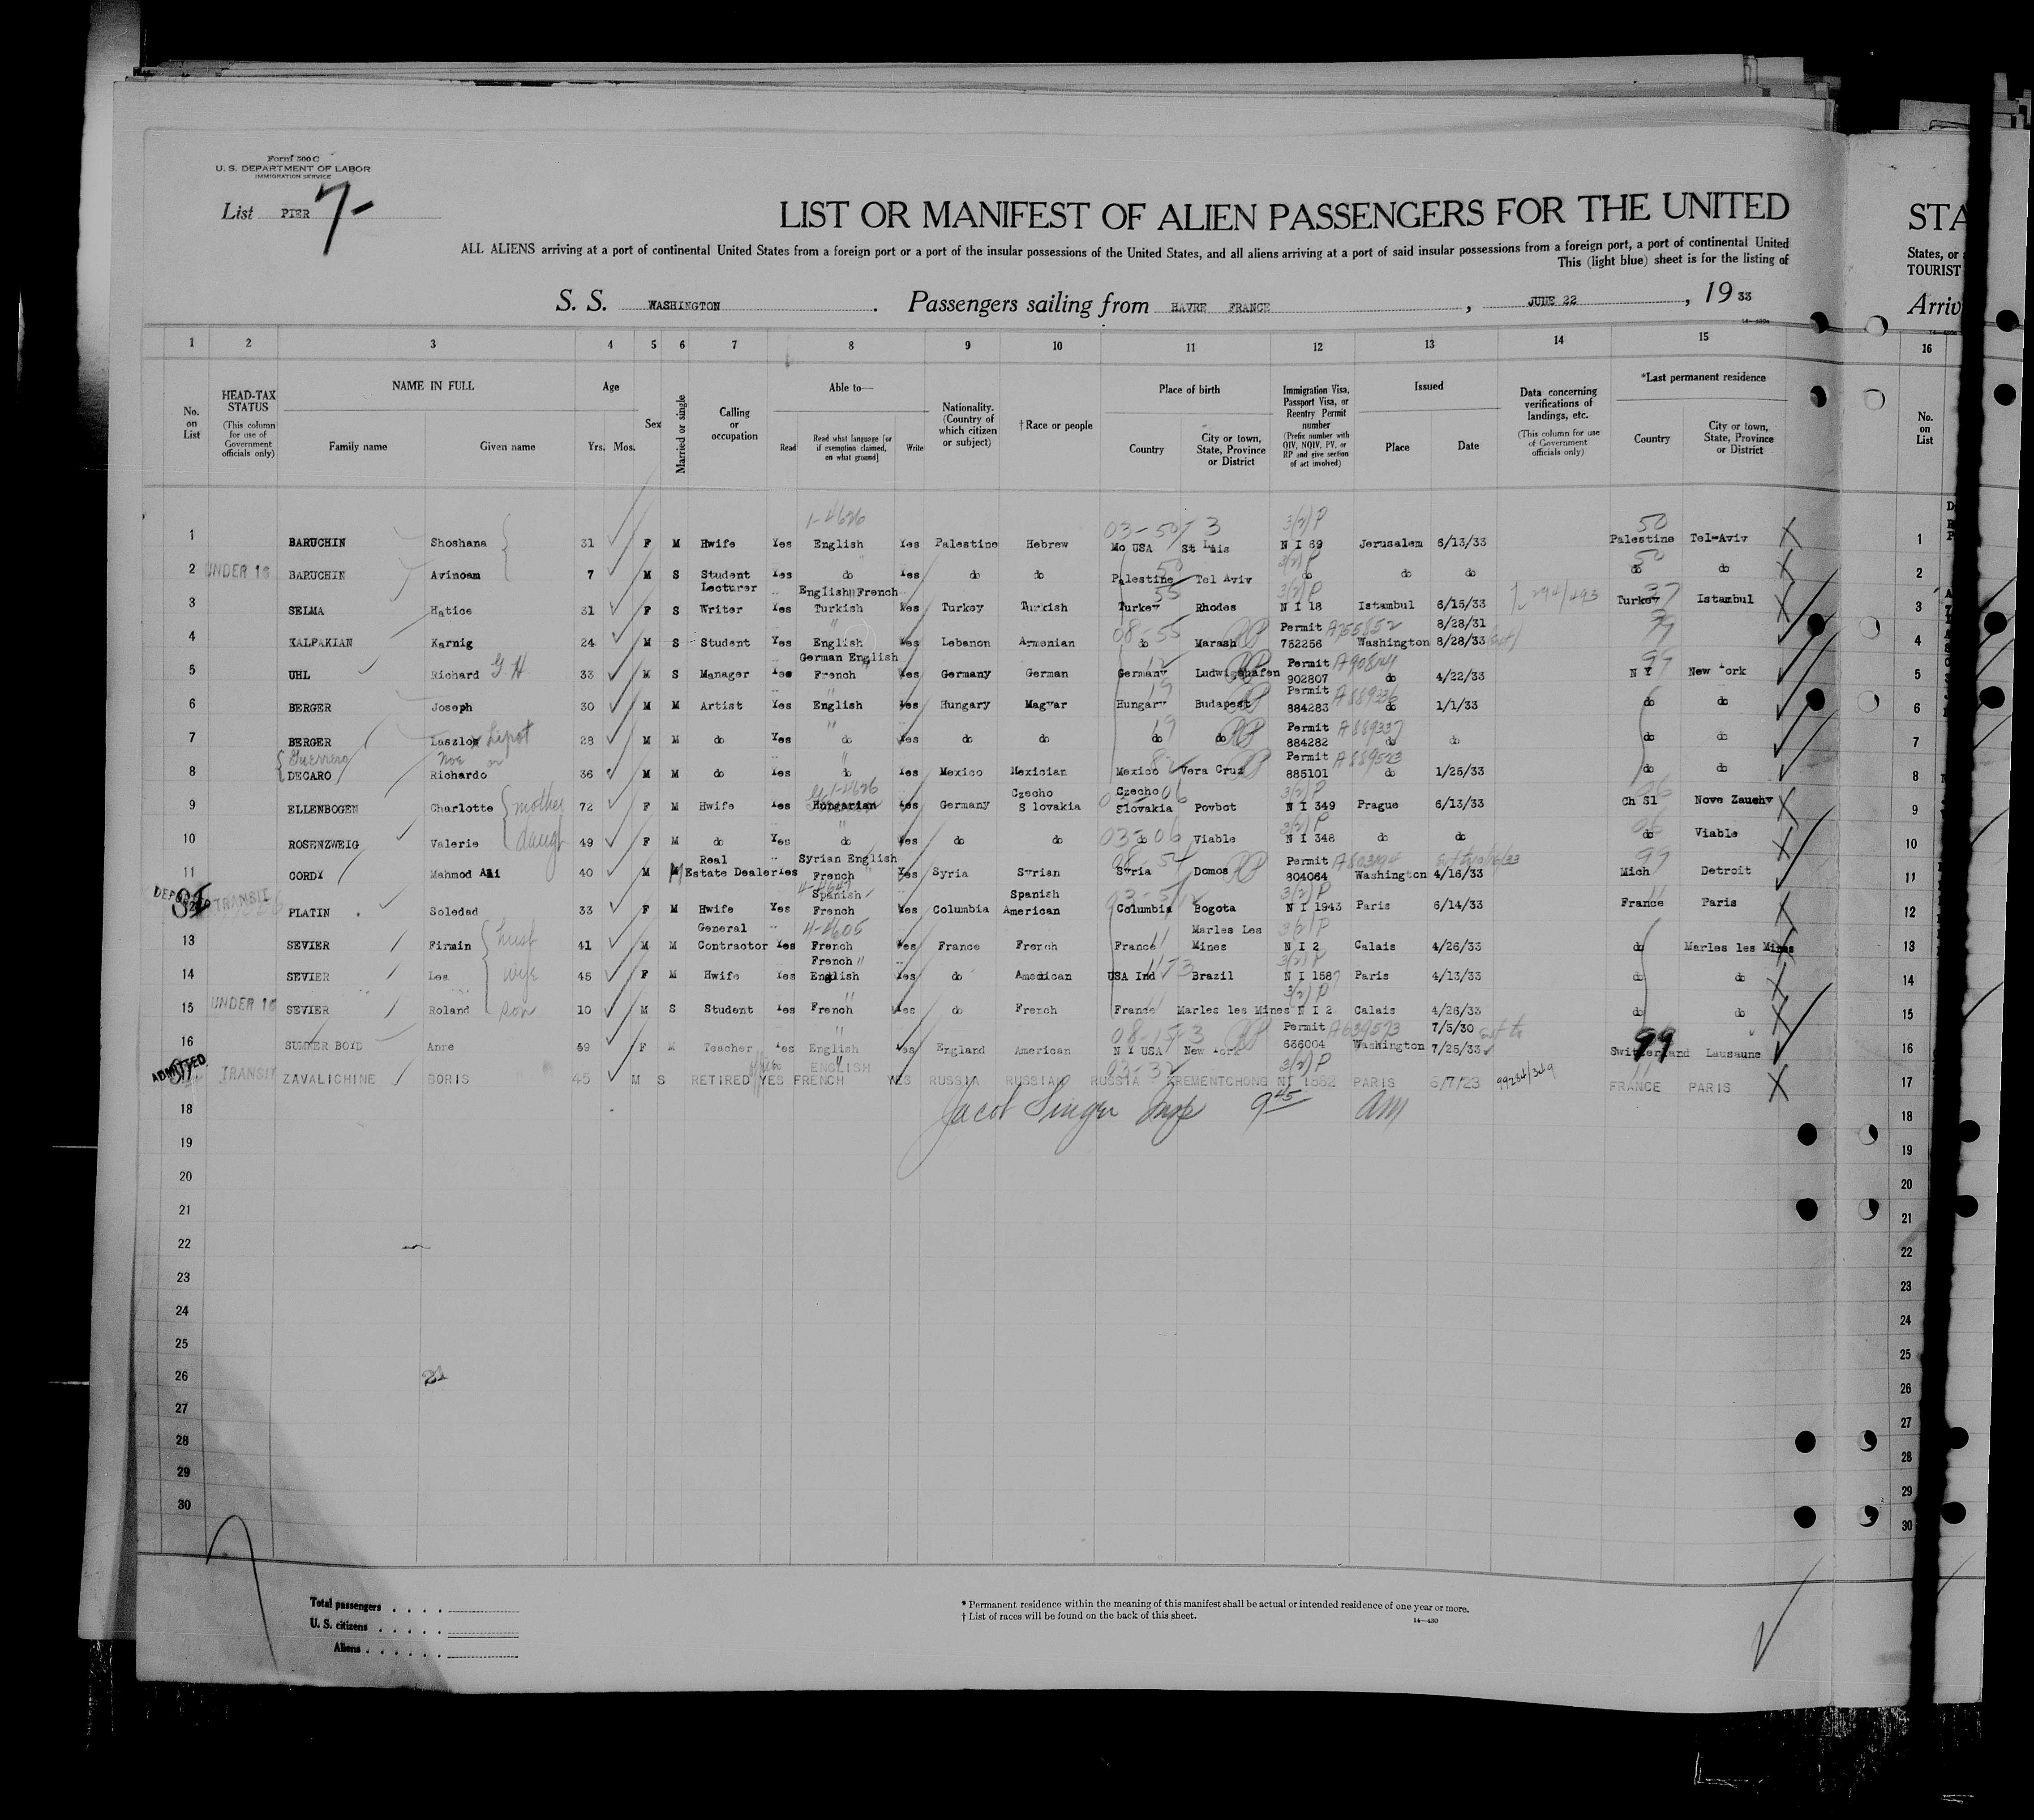 Form 500 C
U. S. DEPARTMENT OF LABOR
IMMIGRATION SERVICE
List PIER 7-
LIST OR MANIFEST OF ALIEN PASSENGERS FOR THE UNITED
STA
ALL ALIENS arriving at a port of continental United States from a foreign port or a port of the insular possessions of the United States, and all aliens arriving at a port of said insular possessions from a foreign port, a port of continental United
States, or
This (light blue) sheet is for the listing of
TOURIST
S. S. WASHINGTON. Passengers sailing from HAVRE FRANCE, JUDE 22, 19 33
Arriv
1 2 3 4 5 6 7 8 9 10 11 12 13 14 15 16
No. on List
HEAD-TAX STATUS (This column for use of Government officials only)
NAME IN FULL Family name Given name
Age Yrs. Mos.
Sex
Married or single
Calling or occupation
Able to— Read Read what language [or if exemption claimed, on what ground] Write
Nationality. (Country of which citizen or subject)
†Race or people
Place of birth Country City or town, State, Province or District
Immigration Visa, Passport Visa, or Reentry Permit number (Prefix number with QIV, NQIV, PV, or RP and give section of act involved)
Issued Place Date
Data concerning verifications of landings, etc. (This column for use of Government officials only)
*Last permanent residence Country City or town, State, Province or District
No. on List
1-4626 03-50 3 3(2)P 50
1 BARUCHIN Shoshana 31 F M Hwife Yes English Yes Palestine Hebrew Mo USA N I 69 Jerusalem 6/13/33 Palestine Tel-Aviv X 1
2 UNDER 16 BARUCHIN Avinoam 7 M S Student Yes do Yes do do Palestine Tel Aviv 3(2)P do do do do X 2
3 SELMA Hatice 31 F S Lecturer Writer Yes English French Turkish Yes Turkey Turkish Turkey Rhodes 3(2)P N I 18 Istambul 6/15/33 Turkey Istambul X 3
4 KALPAKIAN Karnig 24 M S Student Yes English Yes Lebanon Armenian 08-55 do Marash Permit 752256 Washington 8/28/31 8/28/33 4
5 UHL Richard G H 33 M S Manager Yes German English French Yes Germany German Germany Ludwigshafen Permit 902807 do 4/22/33 N Y New York 5
6 BERGER Joseph 30 M M Artist Yes English Yes Hungary Magyar Hungary Budapest Permit A889336 884283 do 1/1/33 do do 6
7 BERGER Laszlo Lipot 28 M M do Yes do Yes do do do do Permit A889337 884282 do do do do 7
8 Guerrero DECARO Noe or Richardo 36 M M do Yes do Yes Mexico Mexician Mexico Vera Cruz Permit A889523 885101 do 1/25/33 do do 8
9 ELLENBOGEN Charlotte mother 72 F M Hwife Yes 1-4626 Hungarian Yes Germany Czecho Slovakia Czecho Slovakia Povbot 3(2)P N I 349 Prague 6/13/33 Ch Sl Nove Zauchy X 9
10 ROSENZWEIG Valerie daugt 49 F M do Yes do Yes do do 03-06 do Viable 3(2)P N I 348 do do do Viable X 10
11 CORDY Mahmod Ali 40 M M Real Estate Dealer Yes Syrian English French Yes Syria Syrian Syria Domos Permit 804064 Washington 4/16/33 99 Mich Detroit 11
TRANSIT PLATIN Soledad 33 F M Hwife Yes Spanish French Yes Columbia Spanish American Columbia Bogota 3(2)P N I 1943 Paris 6/14/33 France Paris X 12
13 SEVIER Firmin husb 41 M M General Contractor Yes 4-4605 French Yes France French France Marles Les Mines 3(2)P N I 2 Calais 4/26/33 do Marles les Mines X 13
14 SEVIER Lea wife 45 F M Hwife Yes French English Yes do American USA Ind Brazil 3(2)P N I 1587 Paris 4/13/33 do do X 14
15 UNDER 16 SEVIER Roland son 10 M S Student Yes French Yes do French France Marles les Mines 3(2)P N I 2 Calais 4/26/33 do do X 15
16 SUMNER BOYD Anne 69 F M Teacher Yes English Yes England American N Y USA New York Permit A639573 636004 Washington 7/5/30 7/25/33 99 Switzerland Lausaune 16
ADMITTED TRANSIT ZAVALICHINE BORIS 45 M S RETIRED YES ENGLISH FRENCH YES RUSSIA RUSSIAN 03-32 RUSSIA KREMENTCHONG 3(2)P NI 1882 PARIS 6/7/23 FRANCE PARIS X 17
18 Jacob Singer Insp 9 45 am 18
19 19
20 20
21 21
22 22
23 23
24 24
25 25
26 26
27 27
28 28
29 29
30 30
Total passengers
U. S. citizens
Aliens
* Permanent residence within the meaning of this manifest shall be actual or intended residence of one year or more.
† List of races will be found on the back of this sheet.
14—430